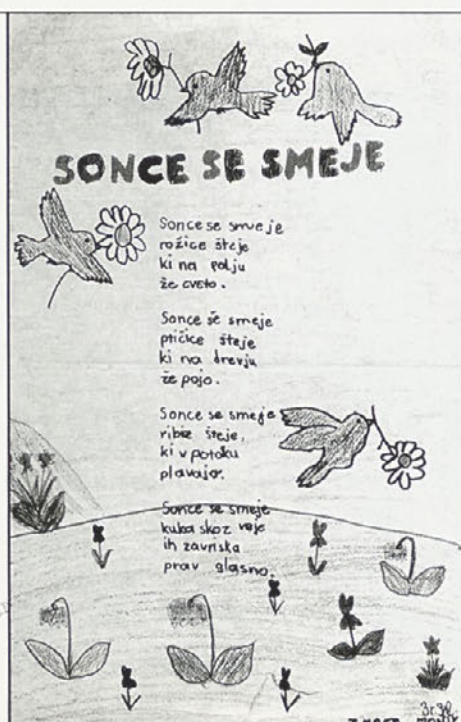 SONCE SE SMEJE
Sonce se smeje
rožice šteje
ki na polju
že cveto.
Sonce se smeje
ptičice šteje
ki na drevju
že pojo.
Sonce se smeje
ribic šteje,
ki v potoku
plavajo.
Sonce se smeje
kuka skoz veje
in zavriska
prav glasno.